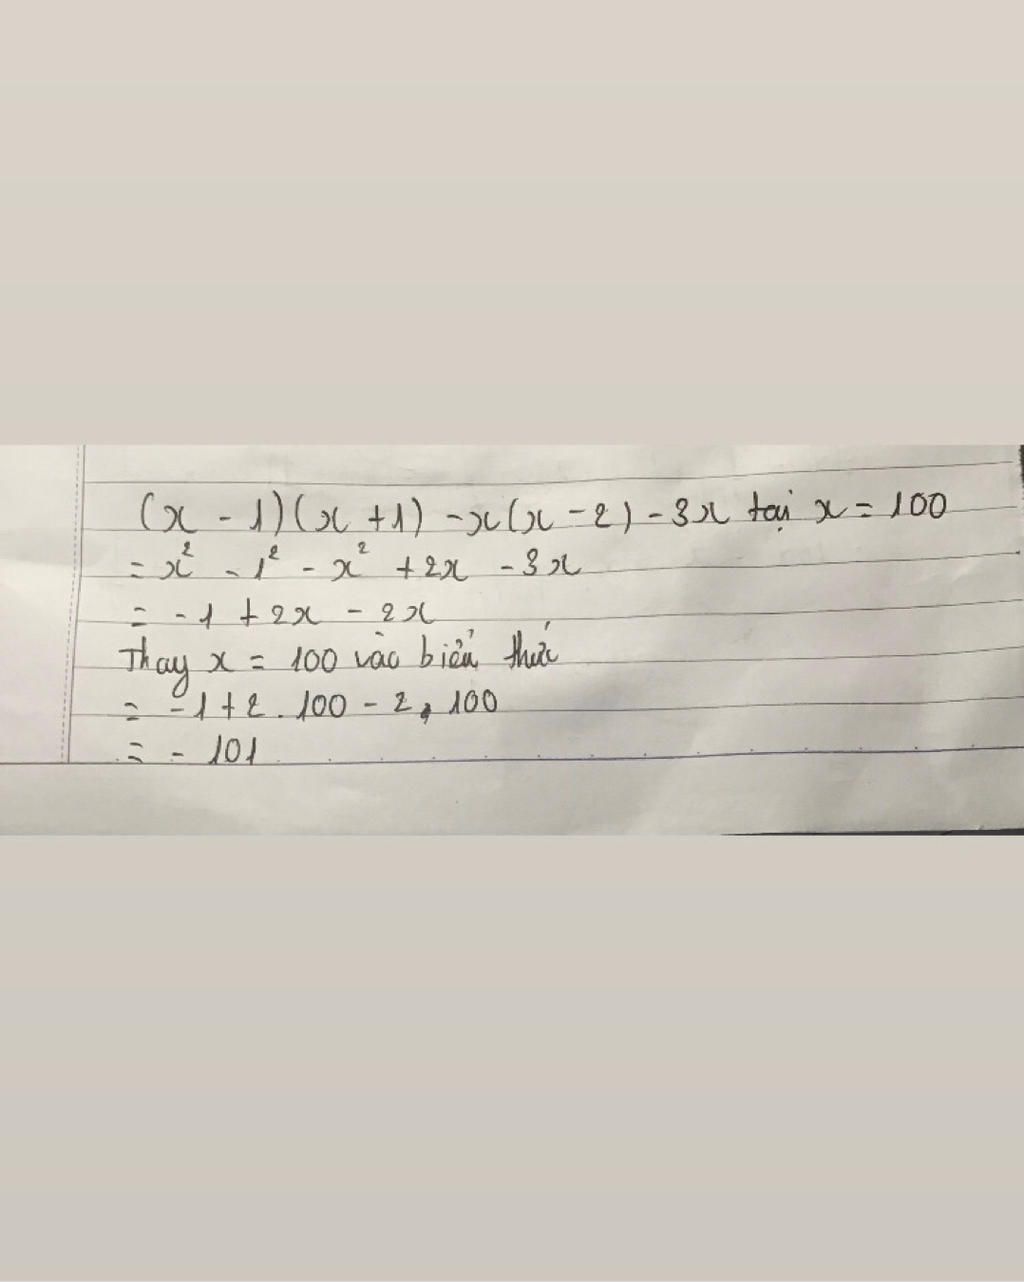 (x - 1)(x + 1) - x(x - 2) - 3x tại x = 100
= x² - 1² - x² + 2x - 3x
= - 1 + 2x - 2x
Thay x = 100 vào biểu thức
= - 1 + 2 . 100 - 2 . 100
= - 101